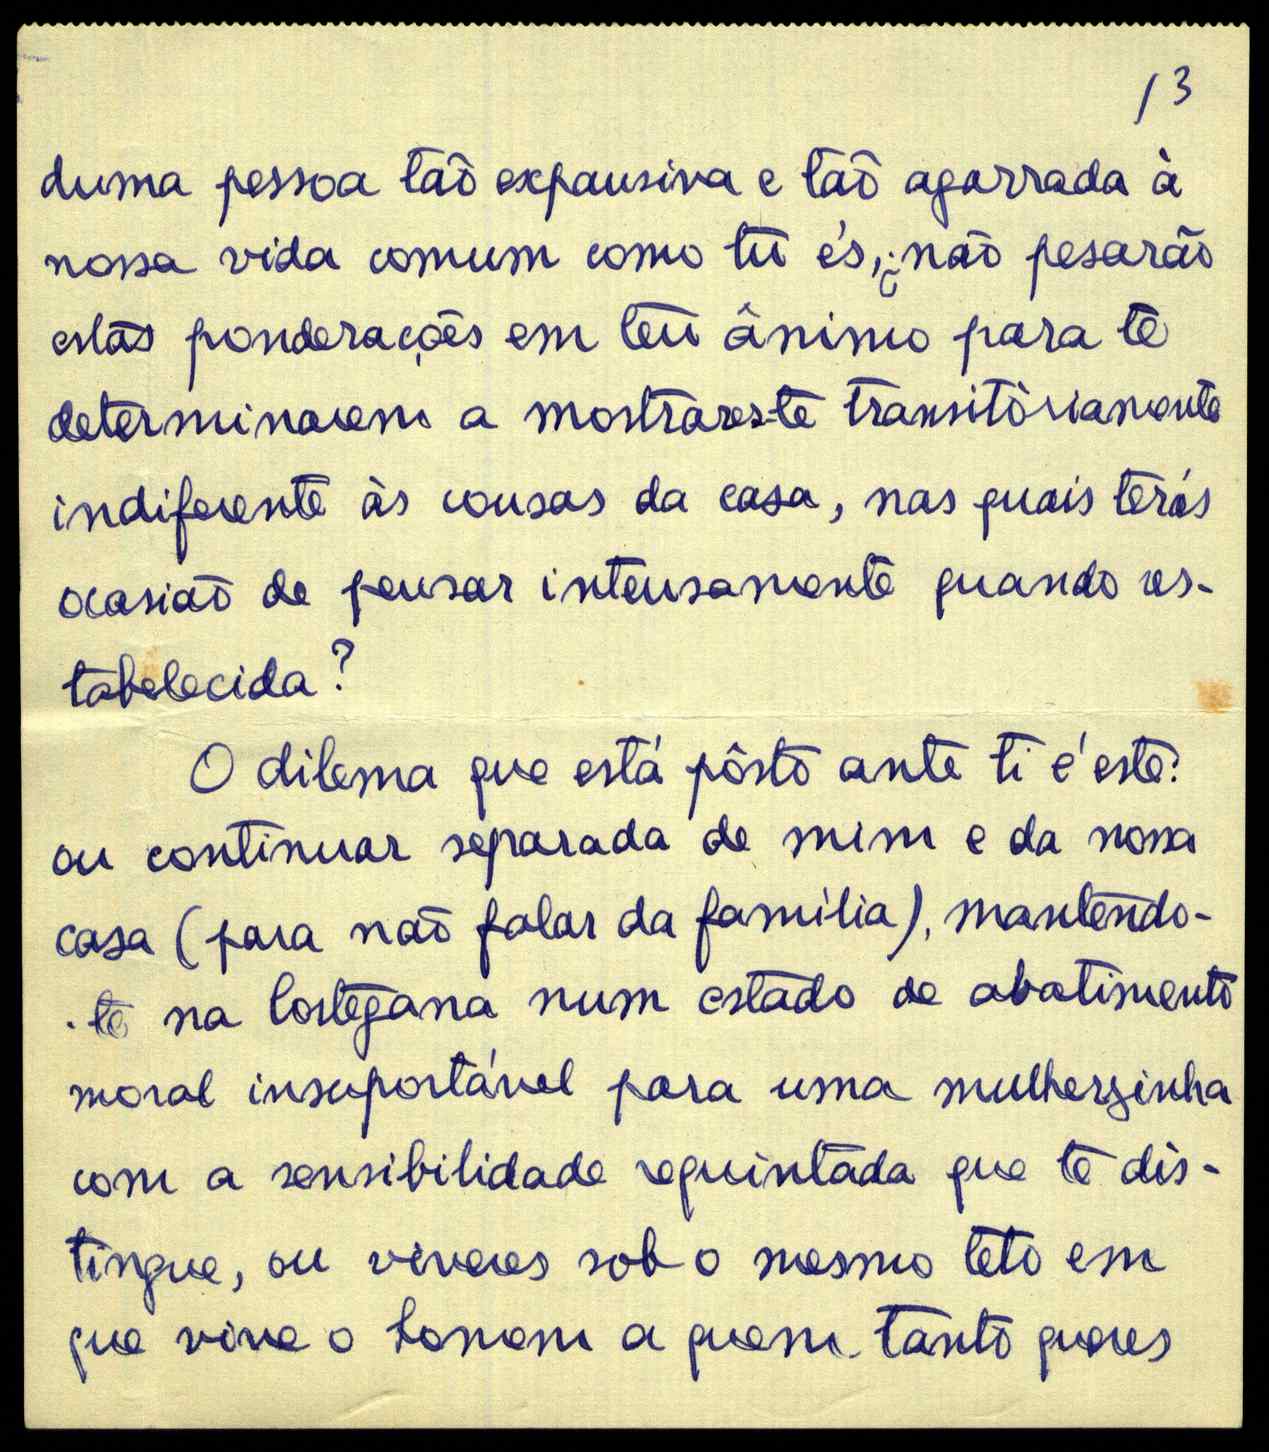 13
duma pessoa tão expansiva e tão agarrada à
nossa vida comum como tu és, ¿não pesarão
estas ponderações em teu ânimo para te
determinarem a mostrares-te transitòriamente
indiferente às cousas da casa, nas quais terás
ocasião de pensar intensamente quando res-
tabelecida?
O dilema que está pôsto ante ti é este:
ou continuar separada de mim e da nossa
casa (para não falar da família), mantendo-
-te na Costegana num estado de abatimento
moral insuportável para uma mulherzinha
com a sensibilidade requintada que te dis-
tingue, ou viveres sob o mesmo teto em
que vive o homem a quem tanto queres